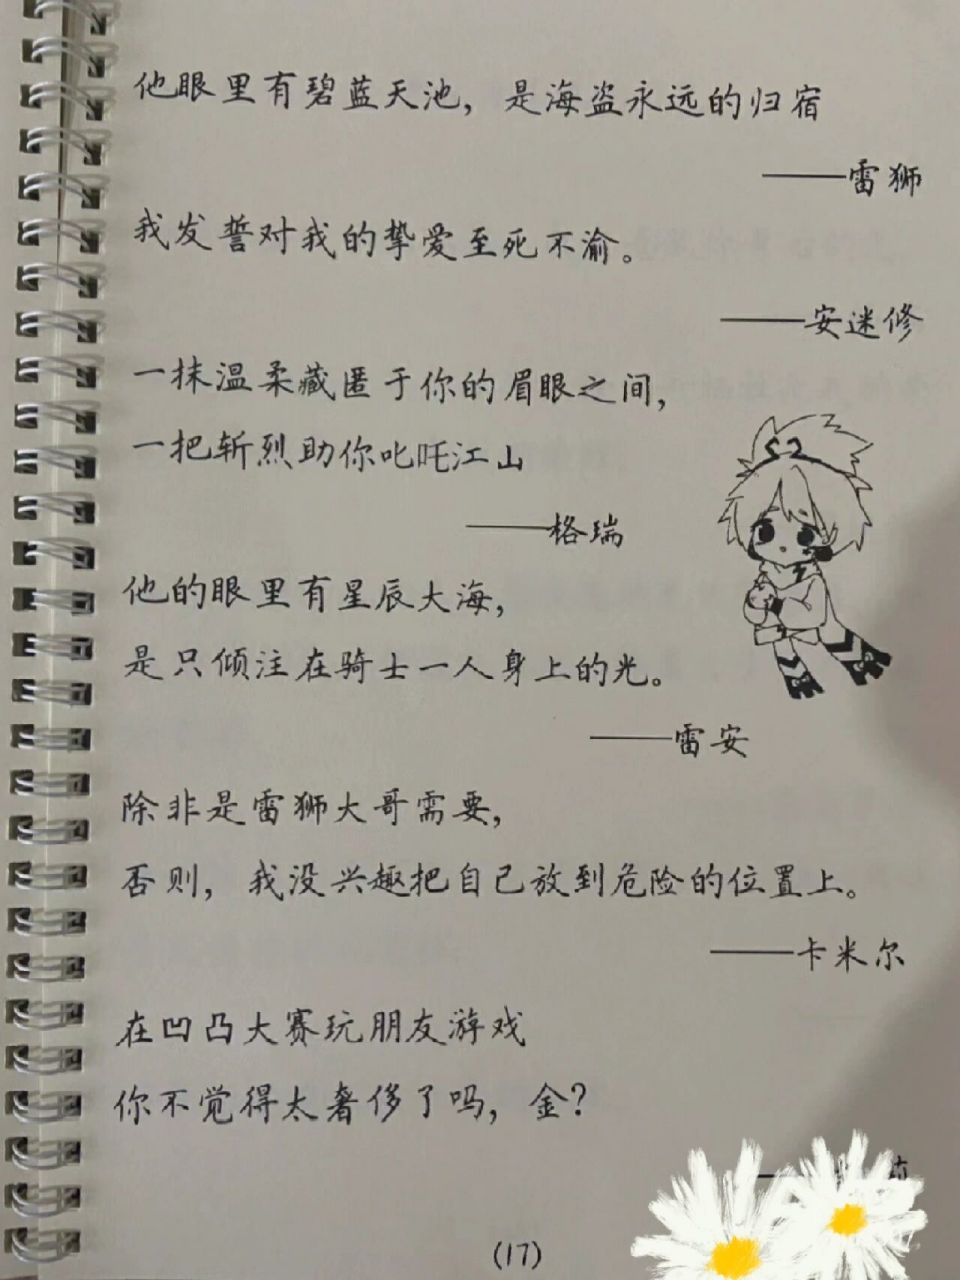 他眼里有碧蓝天池，是海盗永远的归宿
——雷狮
我发誓对我的挚爱至死不渝。
——安迷修
一抹温柔藏匿于你的眉眼之间，
一把斩烈助你叱吒江山
——格瑞
他的眼里有星辰大海，
是只倾注在骑士一人身上的光。
——雷安
除非是雷狮大哥需要，
否则，我没兴趣把自己放到危险的位置上。
——卡米尔
在凹凸大赛玩朋友游戏
你不觉得太奢侈了吗，金？
(17)